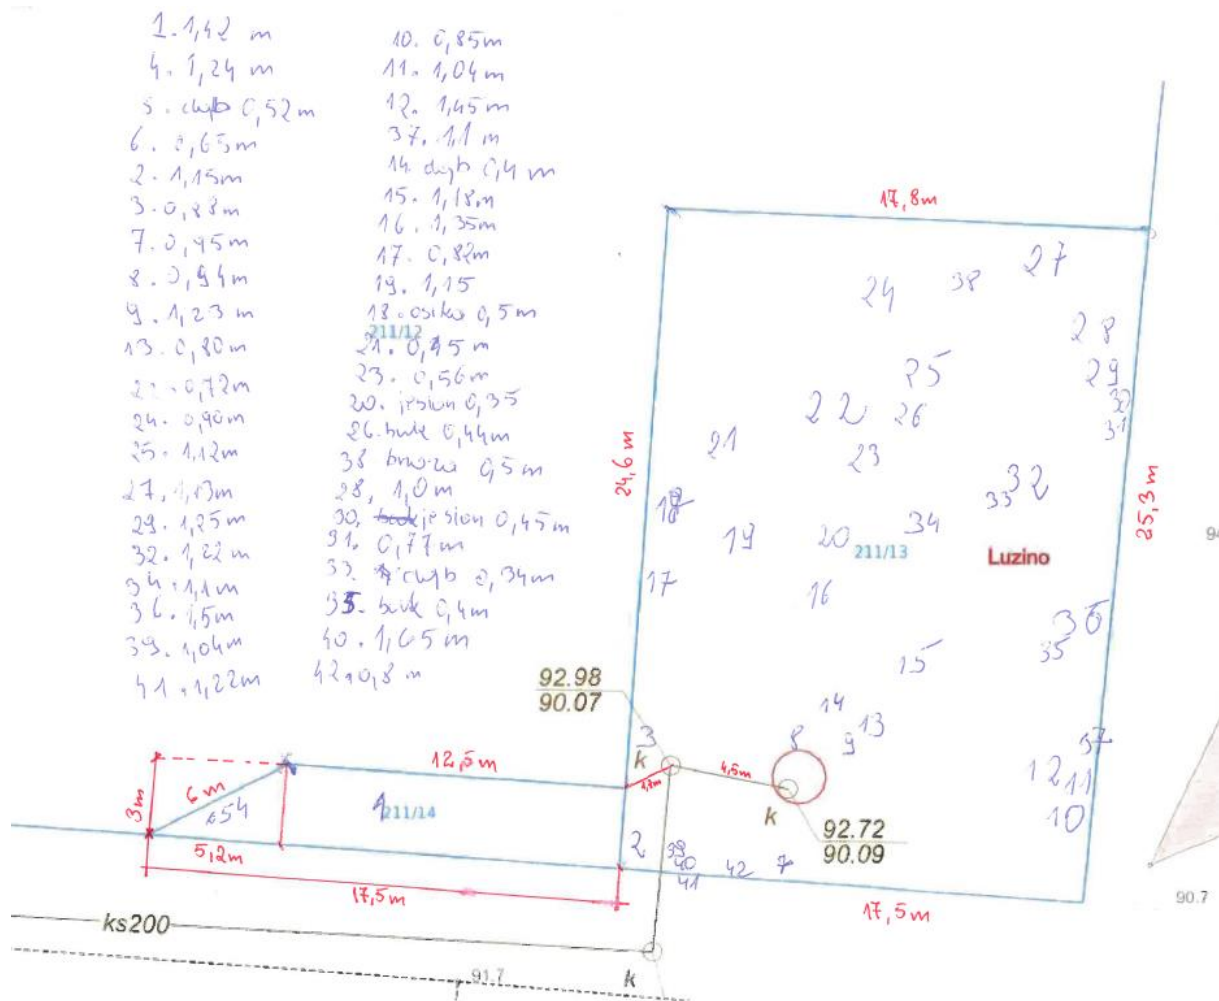 1. 1,42 m
4. 1,24 m
5. dąb 0,52m
6. 0,65m
2. 1,15m
3. 0,88m
7. 0,95m
8. 0,94m
9. 1,23m
13. 0,80m
22. 0,72m
24. 0,90m
25. 1,12m
27. 1,13m
29. 1,25m
32. 1,22m
34. 1,1m
36. 1,5m
39. 1,04m
41. 1,22m
10. 0,85m
11. 1,04m
12. 1,45m
37. 1,1 m
14. dąb 0,4m
15. 1,18m
16. 1,35m
17. 0,82m
19. 1,15
18. osika 0,5m
211/12
21. 0,45m
23. 0,56m
20. jesion 0,35
26. buk 0,44m
38 brzoza 0,5m
28. 1,0m
30. jesion 0,45m
31. 0,77m
33. dąb 0,34m
35. buk 0,4m
40. 1,65m
42. 0,8m
17,8m
27
38
24
28
25
29
30
22
26
31
21
23
24,6 m
32
33
25,3m
18
34
19
20
211/13
Luzino
17
16
36
35
15
92.98
90.07
14
13
3
8
9
37
k
12,5m
4,5m
12
11
6m
3m
654
1
211/14
k
10
92.72
90.09
2
39
40
41
42
7
5,2m
17,5m
17,5m
90.7
ks200
91.7
k